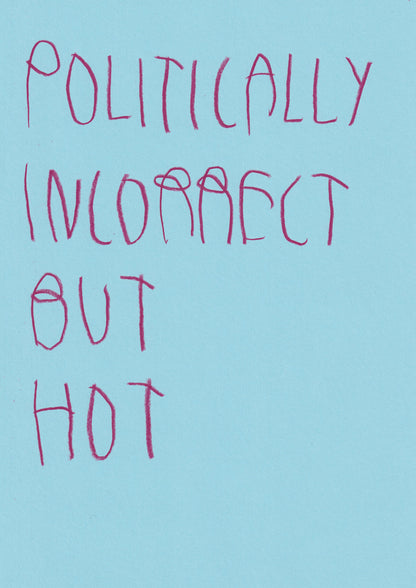 POLITICALLY
INCORRECT
BUT
HOT